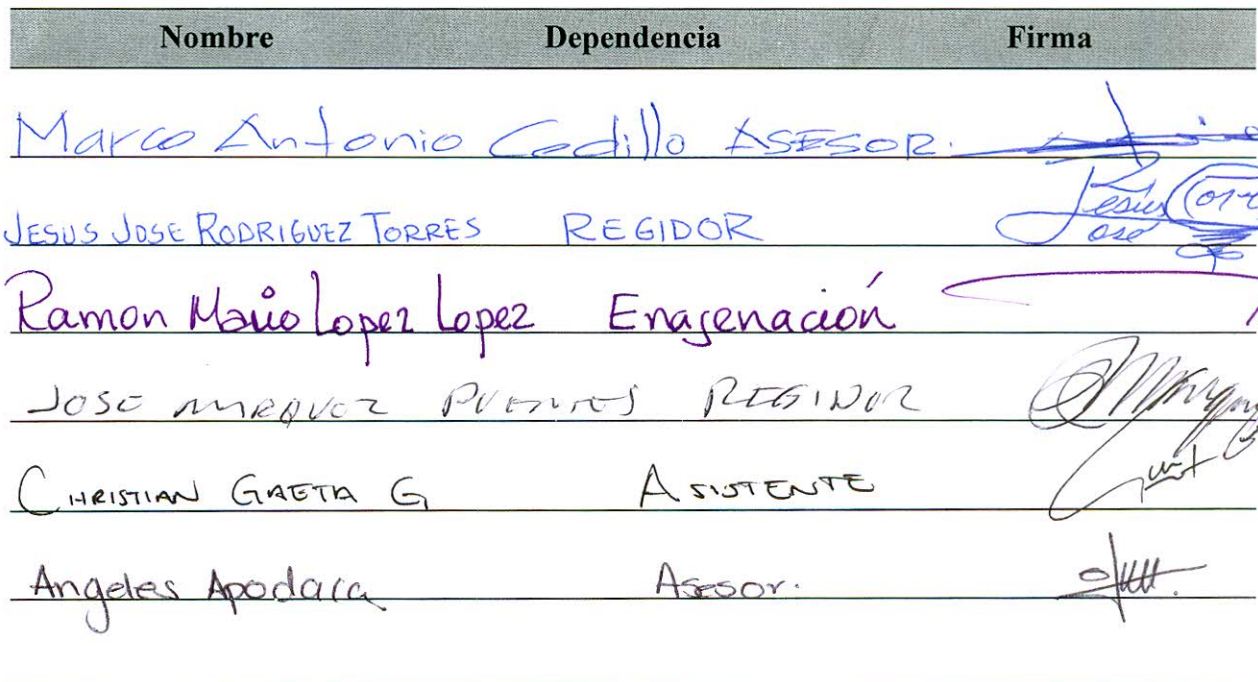 Nombre Dependencia Firma
Marco Antonio Cedillo ASESOR.
JESUS JOSE RODRIGUEZ TORRES REGIDOR Jesús José Torre
Ramon Mario Lopez Lopez Enagenación
JOSE MARQUEZ PUENTES REGIDOR
CHRISTIAN GAETA G ASISTENTE
Angeles Apodaca Asesor.